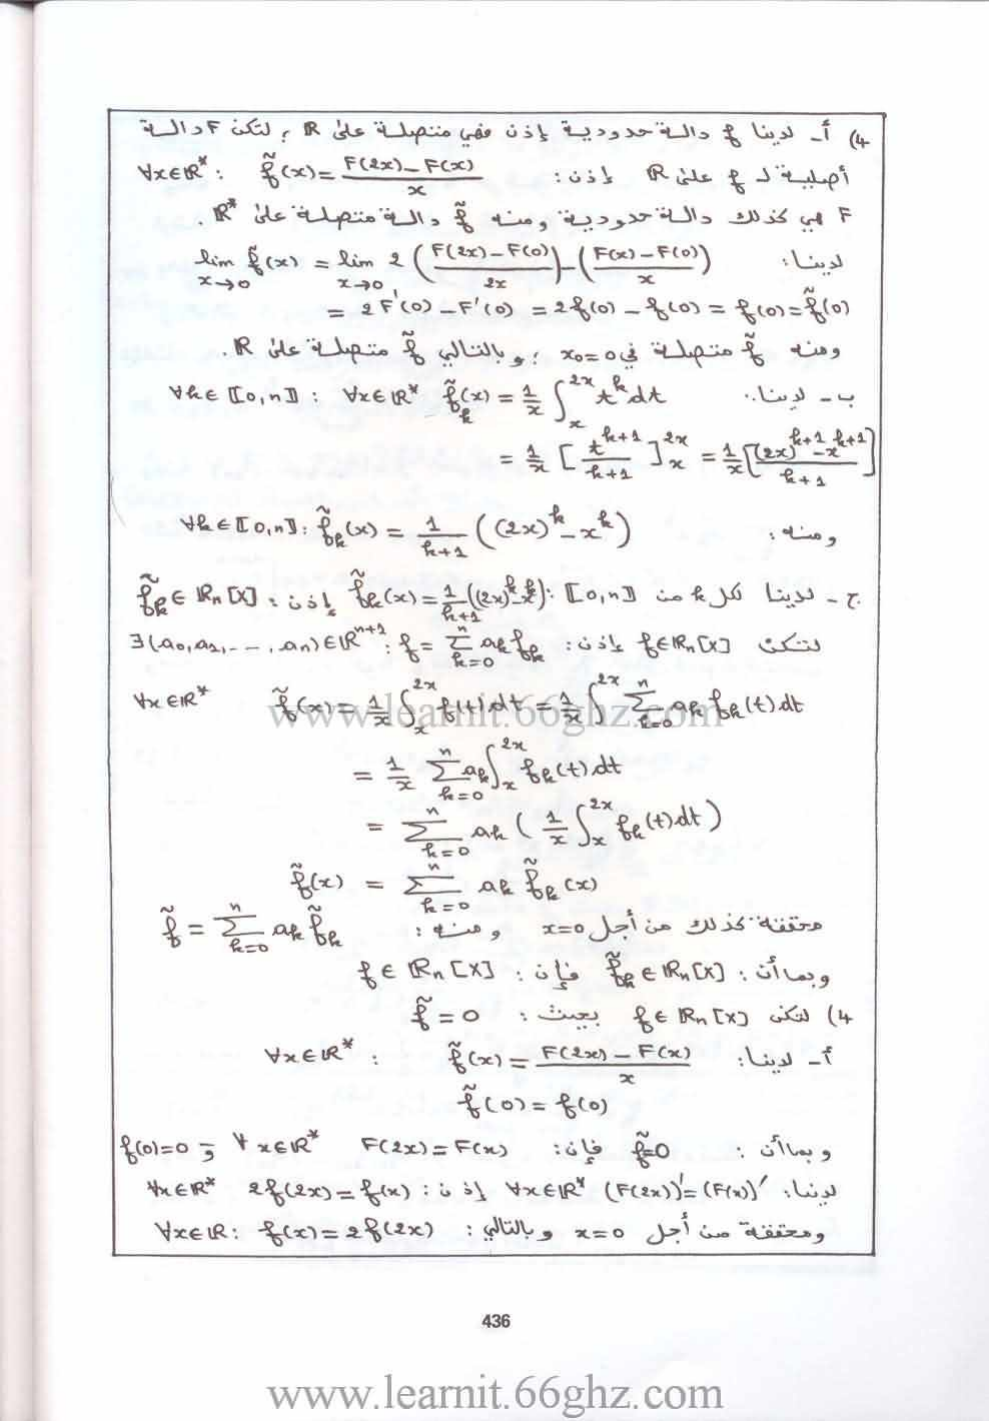 4) أ- لدينا f دالة حدودية إذن فهي متصلة على ℝ ؛ لتكن F دالة
أصلية لـ f على ℝ إذن: ∀x∈ℝ* : f̃(x) = (F(2x) - F(x))/x
F هي كذلك دالة حدودية ومنه f̃ دالة متصلة على ℝ* .
لدينا: lim_{x→0} f̃(x) = lim_{x→0} 2((F(2x)-F(0))/2x) - ((F(x)-F(0))/x)
= 2F'(0) - F'(0) = 2f(0) - f(0) = f(0) = f̃(0)
ومنه f̃ متصلة في x₀=0 ؛ وبالتالي f̃ متصلة على ℝ .
ب- لدينا.. ∀k∈⟦0,n⟧ : ∀x∈ℝ* f̃_k(x) = 1/x ∫_x^{2x} t^k dt
= 1/x [t^{k+1}/(k+1)]_x^{2x} = 1/x [((2x)^{k+1} - x^{k+1})/(k+1)]
ومنه: ∀k∈⟦0,n⟧ : f̃_k(x) = 1/(k+1) ((2x)^k - x^k)
ج- لدينا لكل k من ⟦0,n⟧ : f̃_k(x) = 1/(k+1) ((2x)^k - x^k) إذن: f̃_k ∈ ℝ_n[X]
لتكن f∈ℝ_n[X] إذن: ∃(a₀,a₁,--,a_n)∈ℝ^{n+1} : f = Σ_{k=0}^n a_k f_k
∀x∈ℝ* f̃(x) = 1/x ∫_x^{2x} f(t)dt = 1/x ∫_x^{2x} Σ_{k=0}^n a_k f_k(t)dt
= 1/x Σ_{k=0}^n a_k ∫_x^{2x} f_k(t)dt
= Σ_{k=0}^n a_k (1/x ∫_x^{2x} f_k(t)dt)
f̃(x) = Σ_{k=0}^n a_k f̃_k(x)
محققة كذلك من أجل x=0 ومنه: f̃ = Σ_{k=0}^n a_k f̃_k
وبما أن: f̃_k ∈ ℝ_n[X] فإن: f ∈ ℝ_n[X]
4) لتكن f∈ℝ_n[X] بحيث: f̃ = 0
أ- لدينا: ∀x∈ℝ* : f̃(x) = (F(2x) - F(x))/x
f̃(0) = f(0)
وبما أن: f̃=0 فإن: F(2x) = F(x) ∀x∈ℝ* و f(0)=0
لدينا: ∀x∈ℝ* (F(2x))' = (F(x))' إذن: ∀x∈ℝ* 2f(2x) = f(x)
ومحققة من أجل x=0 وبالتالي: ∀x∈ℝ: f(x) = 2f(2x)
www.learnit.66ghz.com
436
www.learnit.66ghz.com